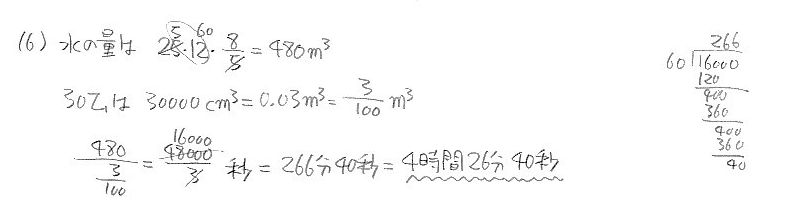 (6) 水の量は 25・12・8/5 = 480m³ 5 60
30Lは 30000cm³ = 0.03m³ = 3/100 m³
480/(3/100) = 48000/3 秒 = 266分40秒 = 4時間26分40秒 16000
266
60 16000
120
400
360
400
360
40